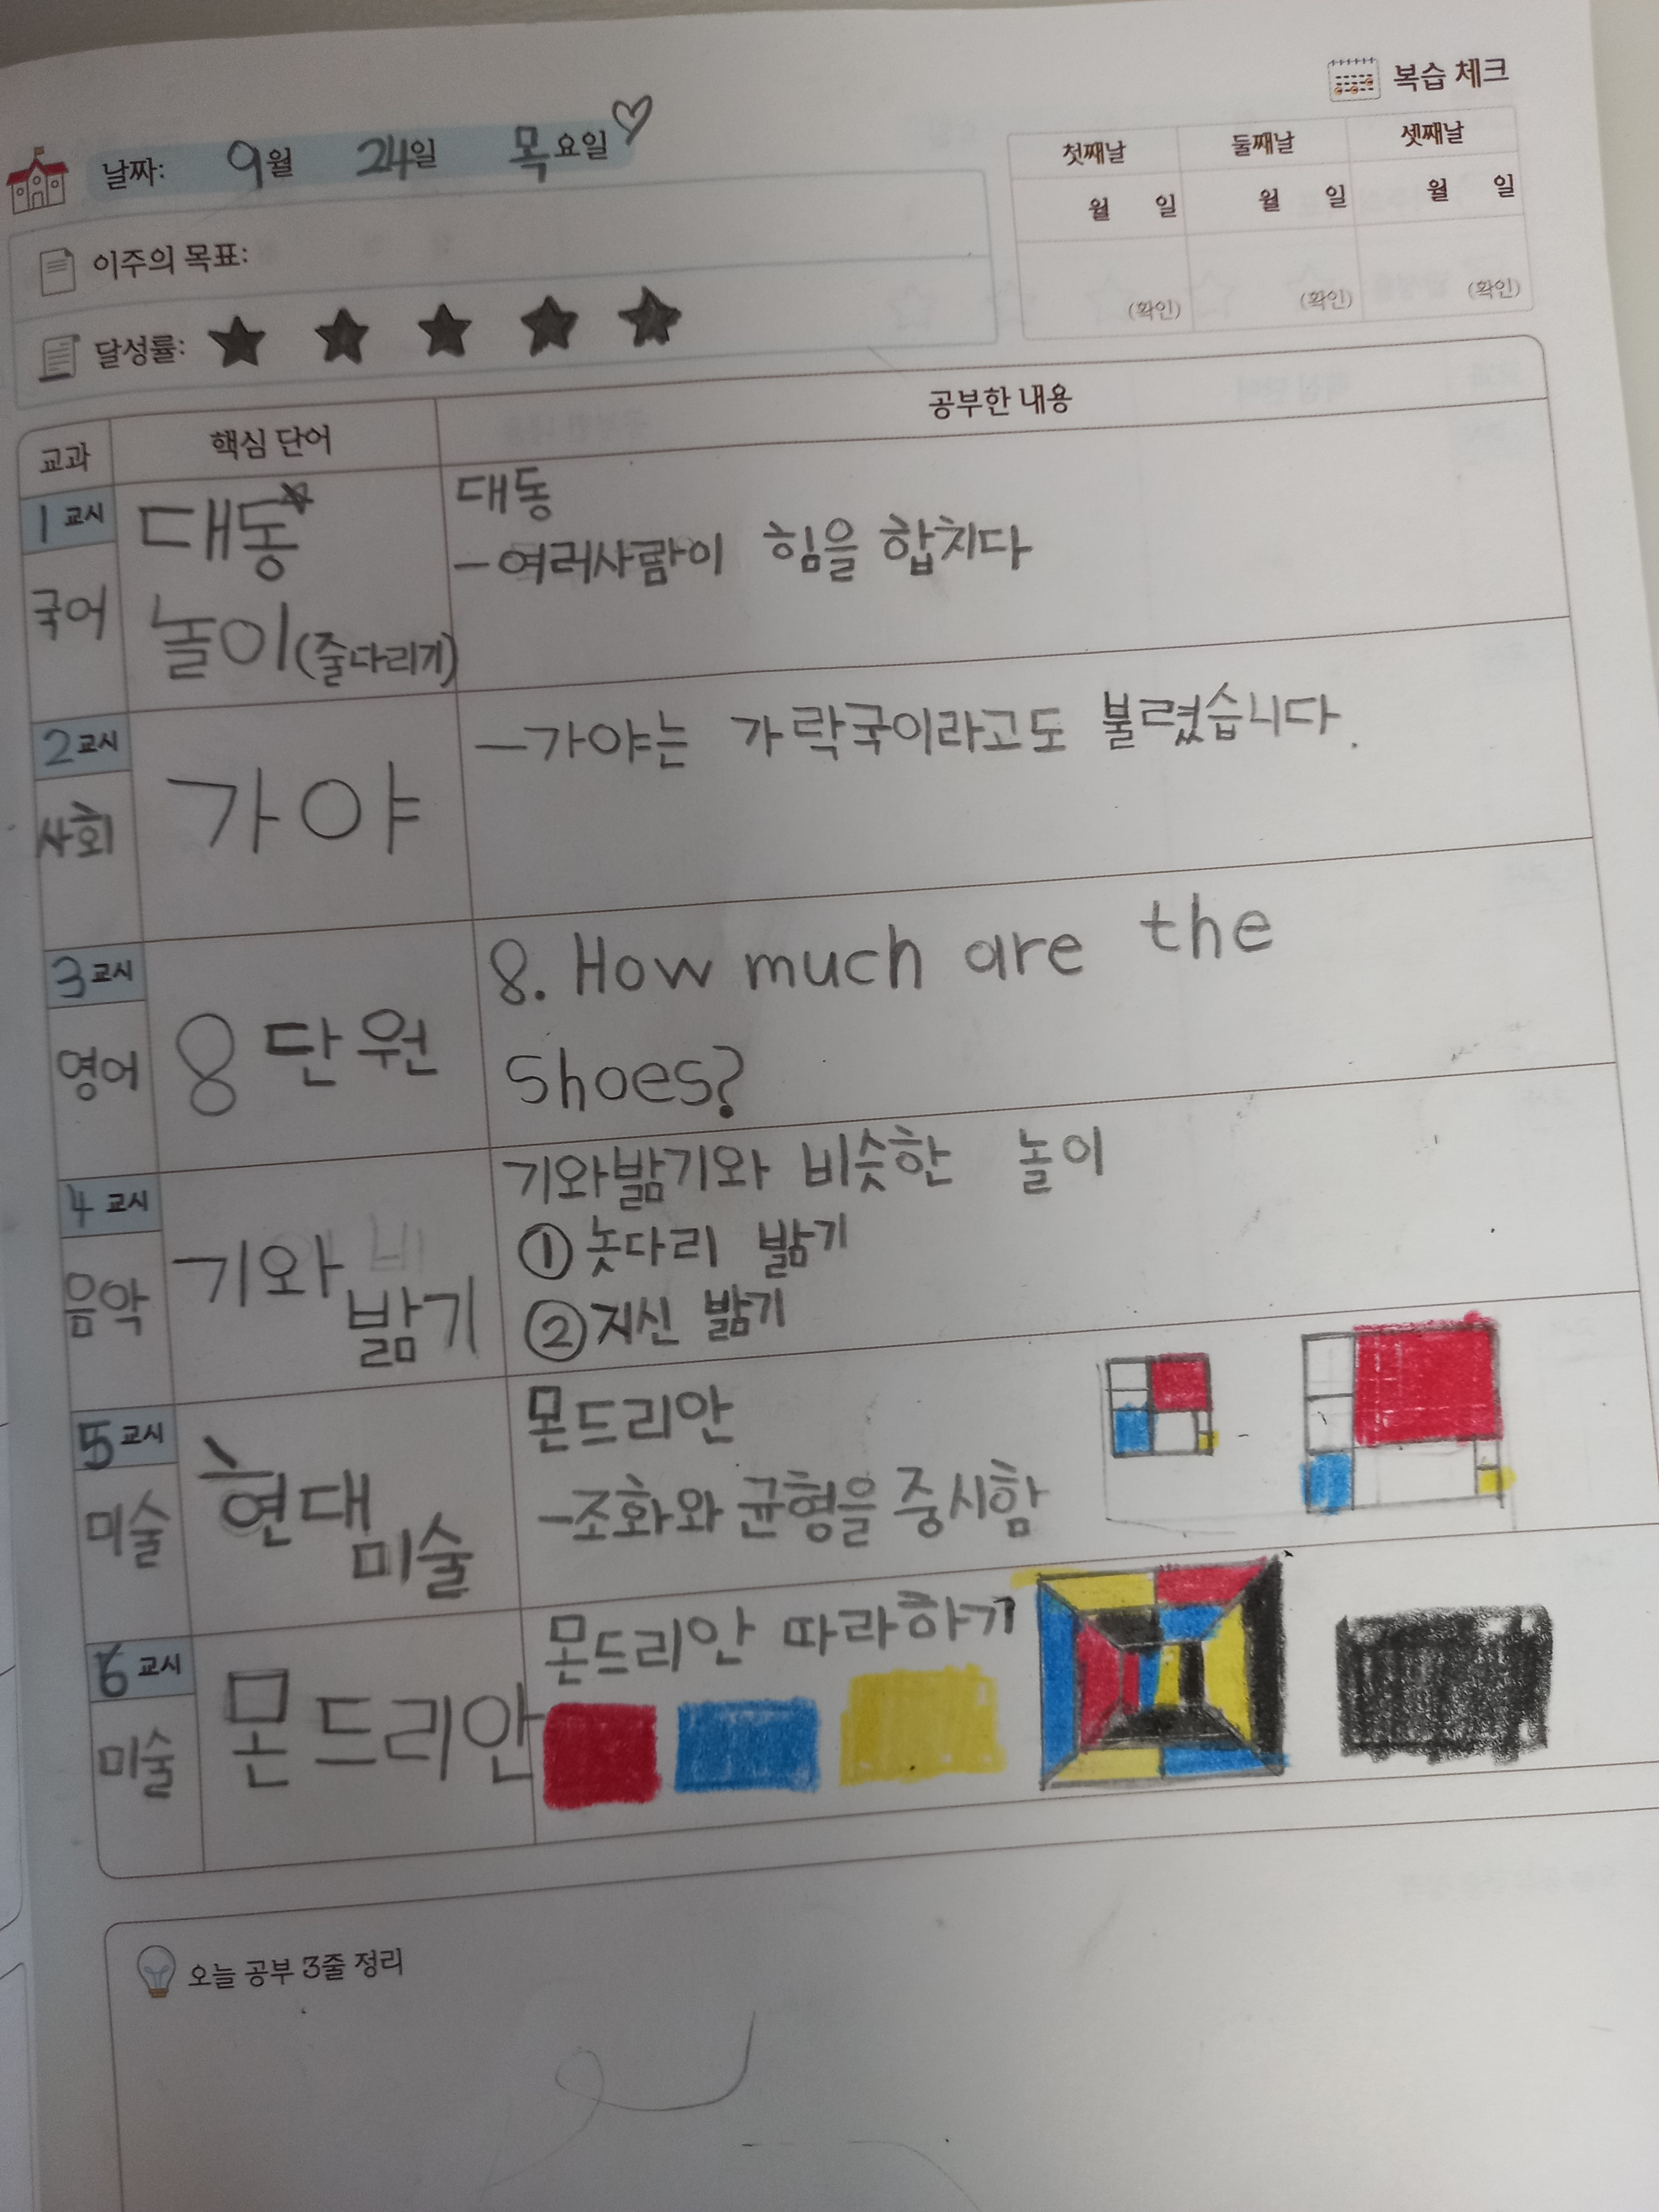 복습 체크
날짜: 9월 24일 목요일
첫째날 둘째날 셋째날
월 일 월 일 월 일
(확인) (확인) (확인)
이주의 목표:
달성률:
교과 핵심 단어 공부한 내용
1 교시
국어
대동
놀이(줄다리기)
대동
-여러사람이 힘을 합치다
2 교시
사회
가야
-가야는 가락국이라고도 불렸습니다.
3 교시
영어
8단원
8. How much are the
shoes?
4 교시
음악
기와
밟기
기와밟기와 비슷한 놀이
① 놋다리 밟기
② 지신 밟기
5 교시
미술
현대
미술
몬드리안
-조화와 균형을 중시함
6 교시
미술
몬드리안
몬드리안 따라하기
오늘 공부 3줄 정리